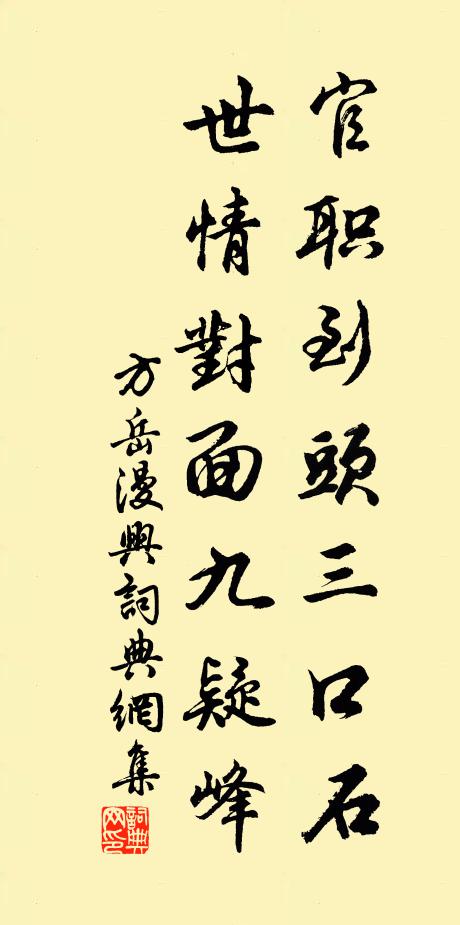 官职到頭三口石
世情對面九疑峰
方岳漫興詞典網集
詞典网印